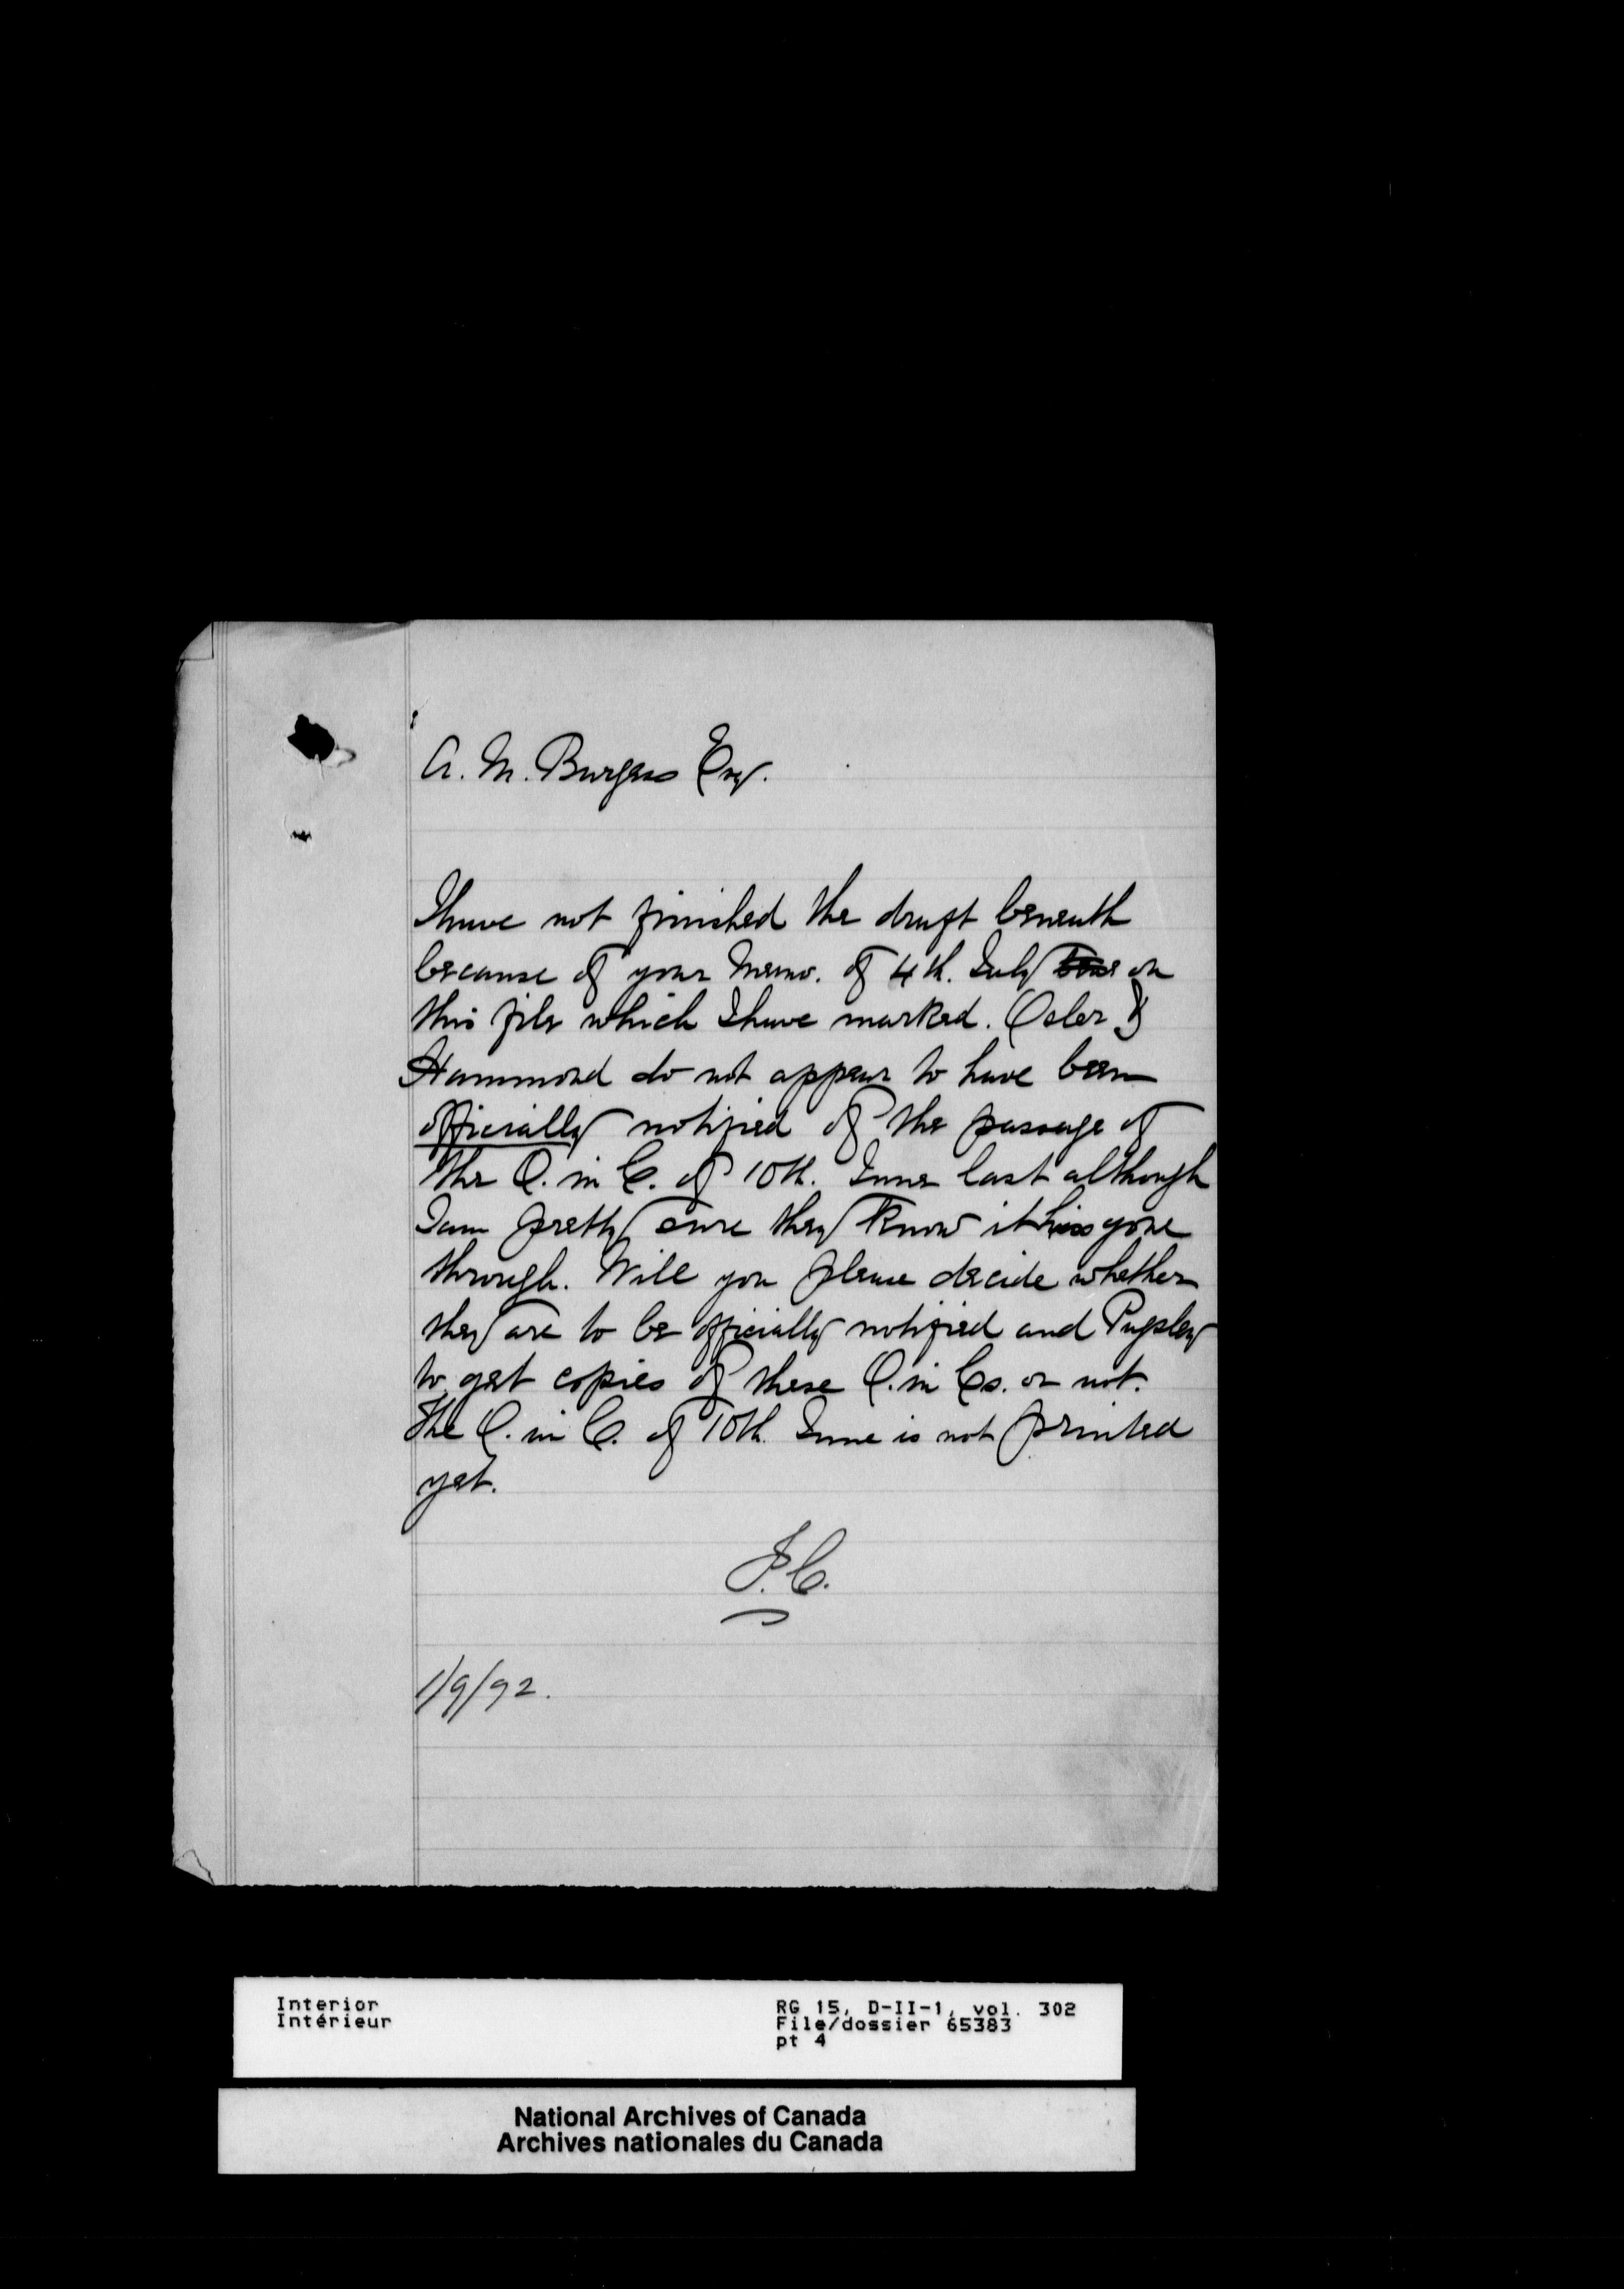 A. M. Burgess Esq.
I have not finished the draft beneath
because of your Memo. of 4th. July on
this file which I have marked. Osler &
Hammond do not appear to have been
officially notified of the passage of
the O. in C. of 10th. June last although
I am pretty sure they know it has gone
through. Will you please decide whether
they are to be officially notified and Pugsley
to get copies of these O. in Cs. or not.
The O. in C. of 10th. June is not printed
yet.
F.C.
1/9/92.
Interior
Intérieur
RG 15, D-II-1, vol. 302
File/dossier 65383
pt 4
National Archives of Canada
Archives nationales du Canada